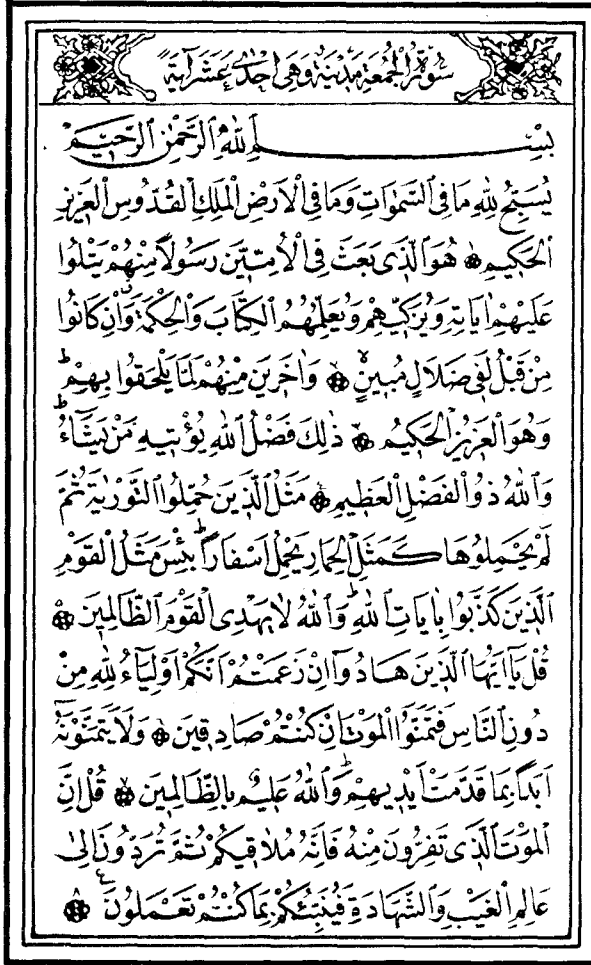 سُورَةُ الْجُمُعَةِ مَدَنِيَّةٌ وَهِىَ اِحْدٰى عَشَرَ اٰيَةً
بِسْمِ اللّٰهِ الرَّحْمٰنِ الرَّحِيمِ
يُسَبِّحُ لِلّٰهِ مَا فِى السَّمٰوَاتِ وَمَا فِى الْاَرْضِ الْمَلِكِ الْقُدُّوسِ الْعَزِيزِ
الْحَكِيمِ ۝ هُوَ الَّذِى بَعَثَ فِى الْاُمِّيّٖنَ رَسُولًا مِنْهُمْ يَتْلُوا
عَلَيْهِمْ اٰيَاتِهٖ وَيُزَكّٖيهِمْ وَيُعَلِّمُهُمُ الْكِتَابَ وَالْحِكْمَةَ وَاِنْ كَانُوا
مِنْ قَبْلُ لَفٖى ضَلَالٍ مُبٖينٍ ۝ وَاٰخَرٖينَ مِنْهُمْ لَمَّا يَلْحَقُوا بِهِمْ ط
وَهُوَ الْعَزٖيزُ الْحَكٖيمُ ۝ ذٰلِكَ فَضْلُ اللّٰهِ يُؤْتٖيهِ مَنْ يَشَٓاءُ ط
وَاللّٰهُ ذُو الْفَضْلِ الْعَظٖيمِ ۝ مَثَلُ الَّذٖينَ حُمِّلُوا التَّوْرٰيةَ ثُمَّ
لَمْ يَحْمِلُوهَا كَمَثَلِ الْحِمَارِ يَحْمِلُ اَسْفَارًا ط بِئْسَ مَثَلُ الْقَوْمِ
الَّذٖينَ كَذَّبُوا بِاٰيَاتِ اللّٰهِ ط وَاللّٰهُ لَا يَهْدِى الْقَوْمَ الظَّالِمٖينَ ۝
قُلْ يَٓا اَيُّهَا الَّذٖينَ هَادُٓوا اِنْ زَعَمْتُمْ اَنَّكُمْ اَوْلِيَٓاءُ لِلّٰهِ مِنْ
دُونِ النَّاسِ فَتَمَنَّوُا الْمَوْتَ اِنْ كُنْتُمْ صَادِقٖينَ ۝ وَلَا يَتَمَنَّوْنَهُٓ
اَبَدًا بِمَا قَدَّمَتْ اَيْدٖيهِمْ ط وَاللّٰهُ عَلٖيمٌ بِالظَّالِمٖينَ ۝ قُلْ اِنَّ
الْمَوْتَ الَّذٖى تَفِرُّونَ مِنْهُ فَاِنَّهُ مُلَاقٖيكُمْ ثُمَّ تُرَدُّونَ اِلٰى
عَالِمِ الْغَيْبِ وَالشَّهَادَةِ فَيُنَبِّئُكُمْ بِمَا كُنْتُمْ تَعْمَلُونَ ع ۝